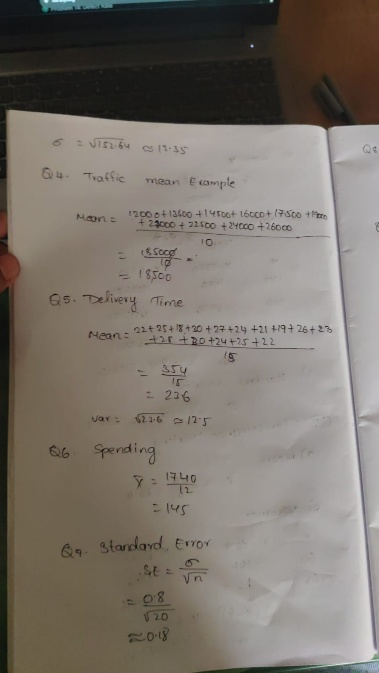 σ = √152.64 ≈ 12.35
Q4. Traffic mean Example
Mean = 12000+13600+14500+16000+17500+19000
+21000+22500+24000+26000
10
= 185000
10
= 18,500
Q5. Delivery Time
Mean = 22+25+18+20+27+24+21+19+26+23
+25+20+24+25+22
15
= 354
15
= 236
var = √23.6 ≈ 12.5
Q6. Spending
x̄ = 1740
12
= 145
Q7. Standard Error
SE = σ
√n
= 0.8
√20
≈ 0.18
Q8